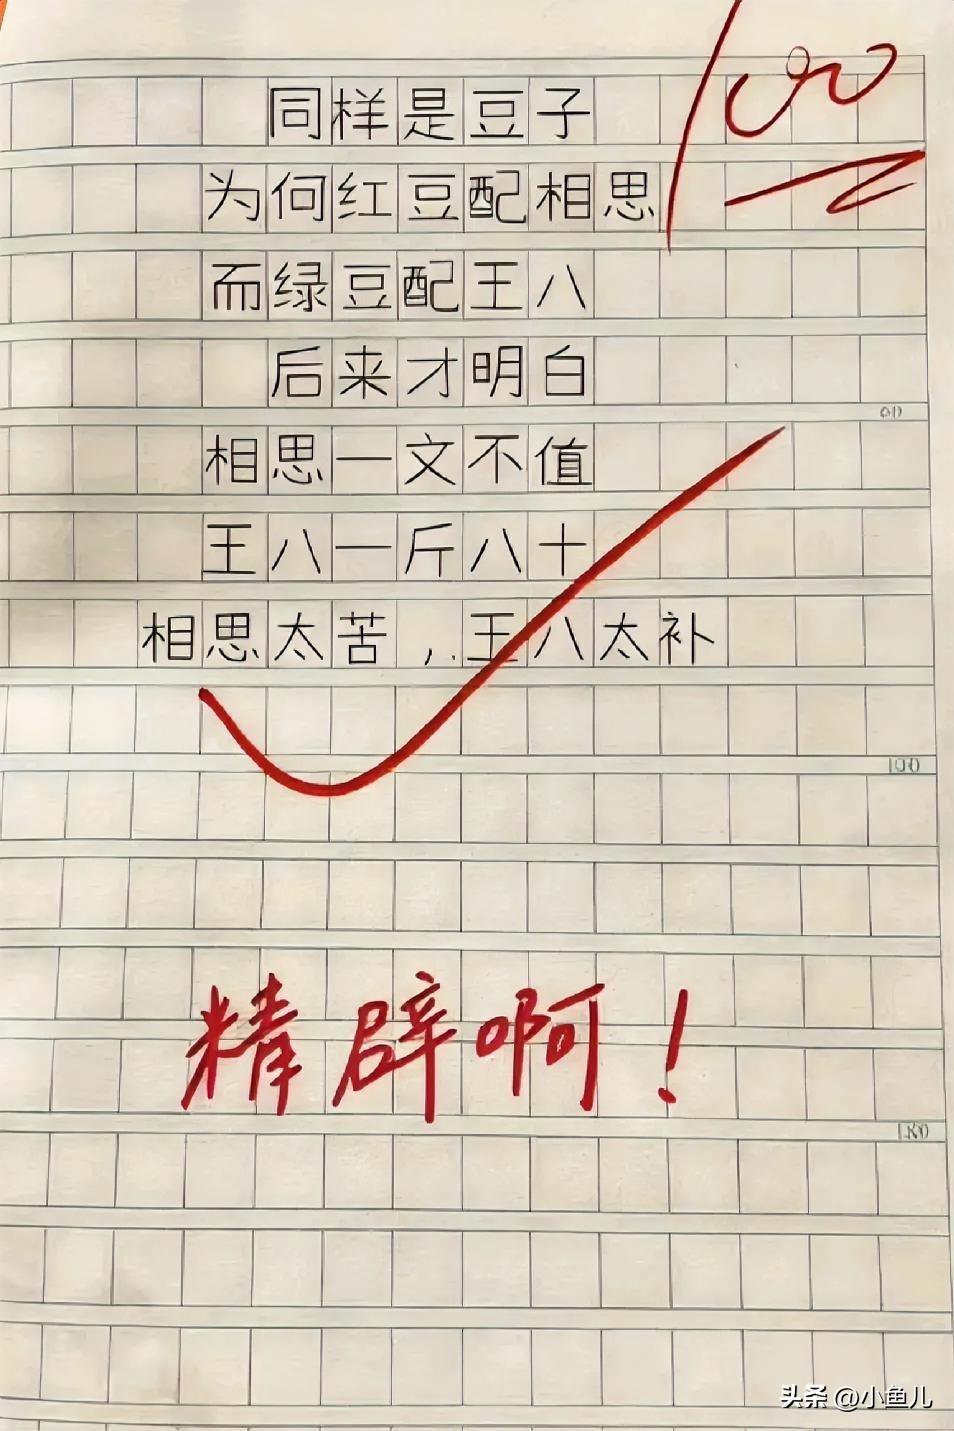 100
同样是豆子
为何红豆配相思
而绿豆配王八
后来才明白
相思一文不值
王八一斤八十
相思太苦,..王八太补
精辟啊!
头条 @小鱼儿